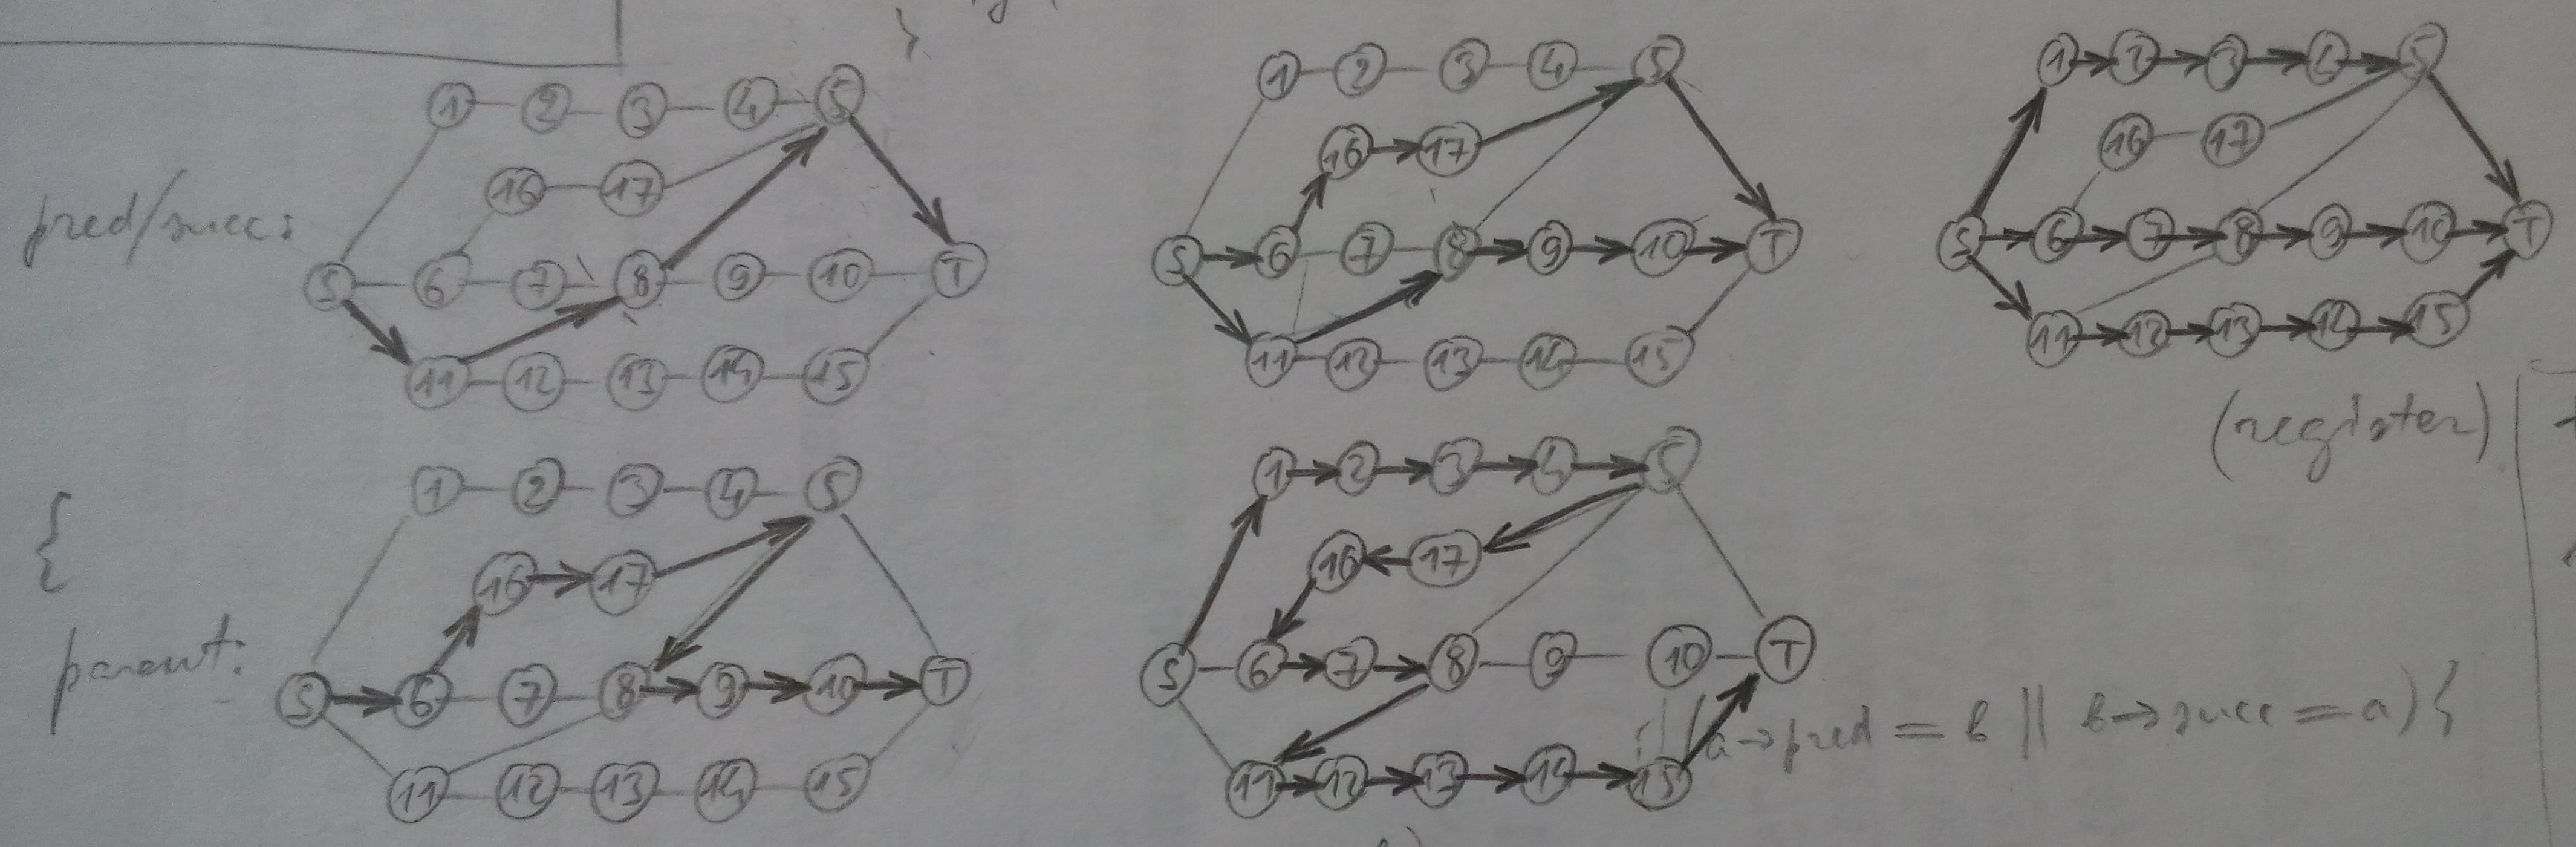 1 2 3 4 5
16 17
pred/succ: S 6 7 8 9 10 T
11 12 13 14 15
1 2 3 4 5
16 17
S 6 7 8 9 10 T
11 12 13 14 15
1 2 3 4 5
16 17
S 6 7 8 9 10 T
11 12 13 14 15
(register)
{
1 2 3 4 5
16 17
parent: S 6 7 8 9 10 T
11 12 13 14 15
1 2 3 4 5
16 17
S 6 7 8 9 10 T
11 12 13 14 15
(a→pred == b || b→succ == a) {